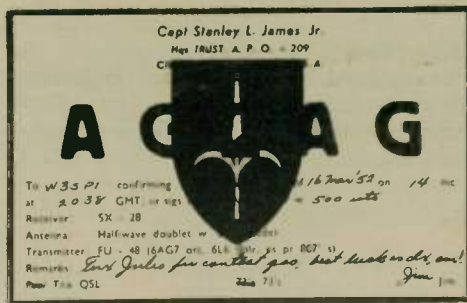 Capt Stanley L. James Jr.
Hqs TRUST A. P. O. 209
AG AG
To W3SPI confirming 16 Mar '52 on 14 mc
at 2038 GMT ur sigs 500 wts
Receiver SX - 28
Antenna Half-wave doublet w
Transmitter FU - 48 (6AG7 osc, 6L6 pr 807's)
Remarks Tnx Jules fer contest qso, best luck es dx, om!
Tnx QSL 73's Jim